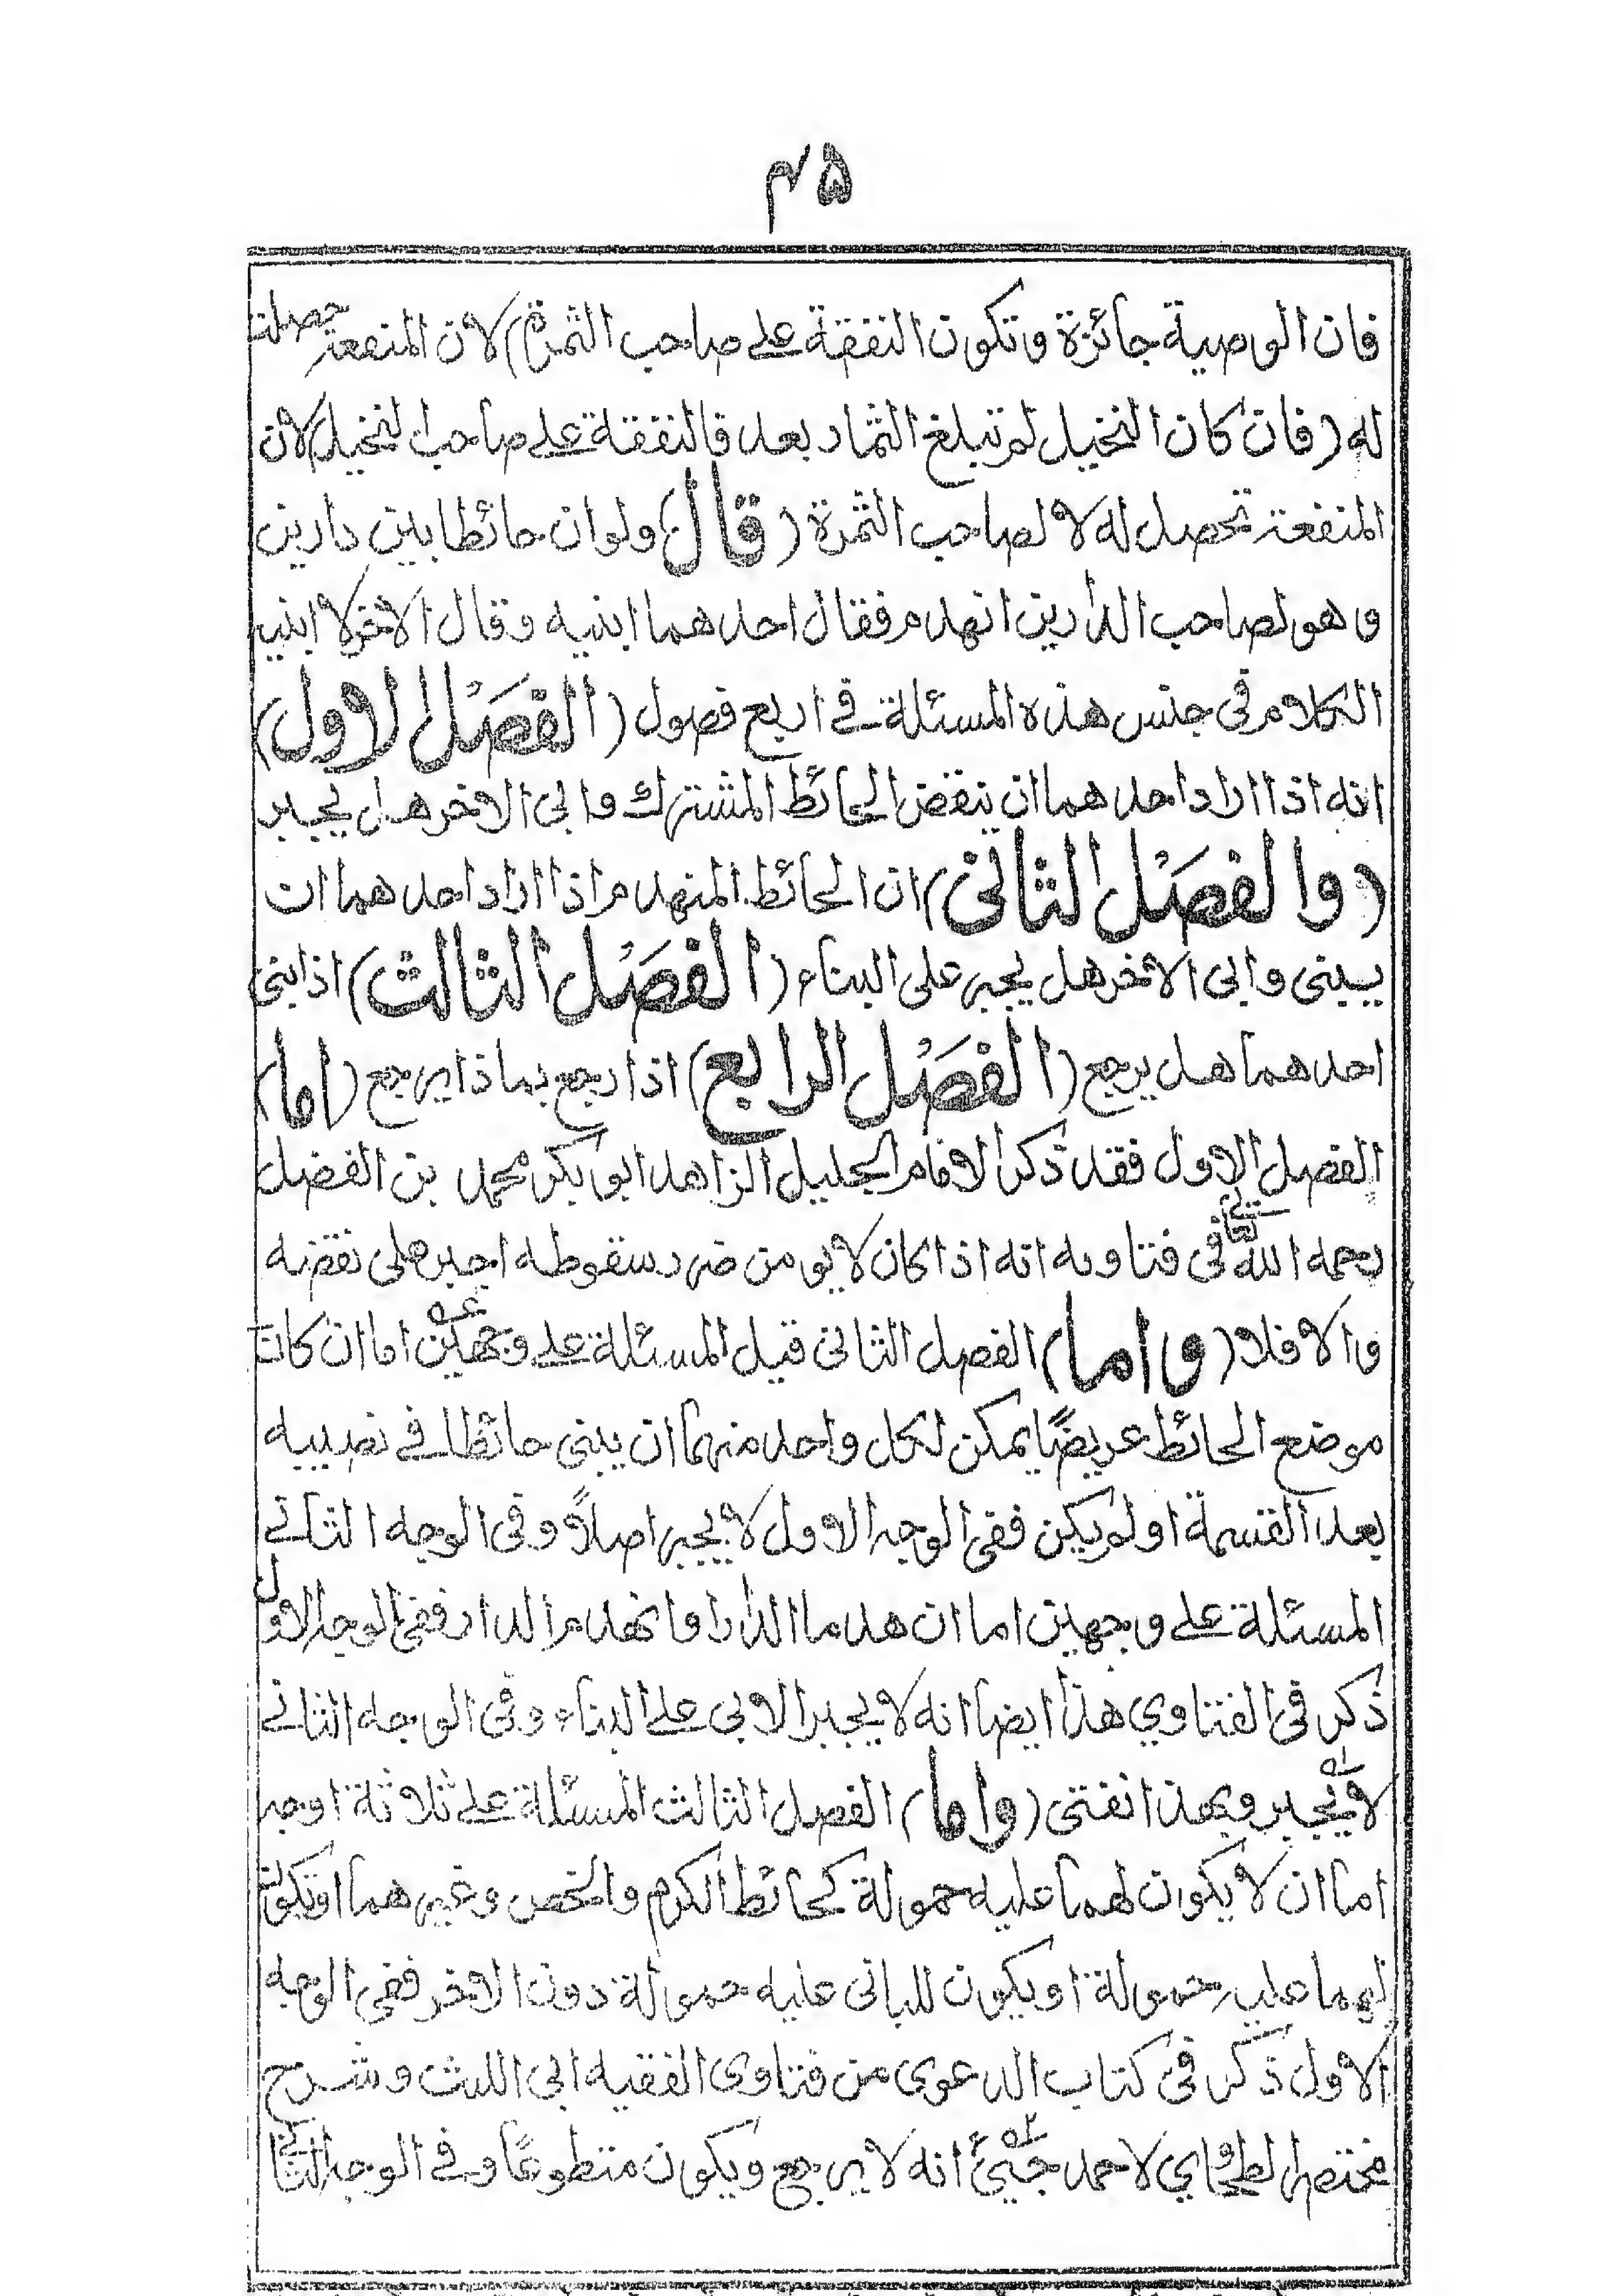 ۴۵
فان الوصية جائزة وتكون النفقة على صاحب الثمرة) لان المنفعة حصلت
له (فان كان النخيل لم تبلغ الثمار بعد فالنفقة على صاحب النخيل) لان
المنفعة تحصل له لا لصاحب الثمرة (قال) ولو ان حائطا بين دارين
وهو لصاحب الدارين انهدم فقال احدهما ابنيه وقال الاخر لا ابنيه
الكلام في جنس هذه المسئلة في اربع فصول (الفصل الاول)
انه اذا اراد احدهما ان ينقض الحائط المشترك وابى الاخر هل يجبر
(والفصل الثاني) ان الحائط المنهدم اذا اراد احدهما ان
يبنى وابى الاخر هل يجبر على البناء (الفصل الثالث) اذا بنى
احدهما هل يرجع (الفصل الرابع) اذا رجع بماذا يرجع (اما)
الفصل الاول فقد ذكر الامام الجليل الزاهد ابو بكر محمد بن الفضل
رحمه الله تعالى في فتاويه انه اذا كان لا يومن ضرر سقوطه اجبر على نقضه
والا فلا (واما) الفصل الثاني قيل المسئلة على وجهين اما ان كان
موضع الحائط عريضًا يمكن لكل واحد منهما ان يبنى حائطا في نصيبه
بعد القسمة او لم يكن ففى الوجه الاول لا يجبر اصلاً وفى الوجه الثاني
المسئلة على وجهين اما ان هدما الدار او انهدم الدار ففى الوجه الاول
ذكر في الفتاوي هذا ايضا انه لا يجبر الابى على البناء وفى الوجه الثاني
لا يجبر وبهذا نفتى (واما) الفصل الثالث المسئلة على ثلاثة اوجه
اما ان لا يكون لهما عليه حمولة كحائط الكرم والخص وغيرهما او تكون
لهما عليه حمولة او يكون للبانى عليه حمولة دون الاخر ففى الوجه
الاول ذكر في كتاب الدعوى من فتاوى الفقيه ابى الليث وشرح
مختصر الطحاوي لاحمد انه لا يرجع ويكون متطوعًا وفي الوجه الثاني